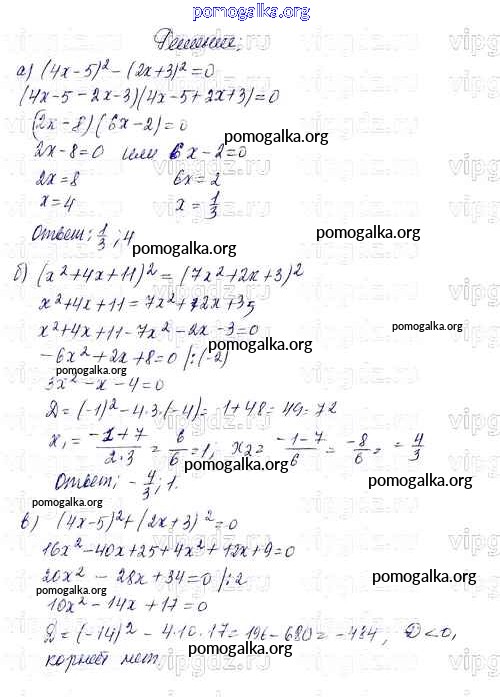 pomogalka.org
Решение:
а) (4x-5)²-(2x+3)²=0
(4x-5-2x-3)(4x-5+2x+3)=0
(2x-8)(6x-2)=0
pomogalka.org
2x-8=0 или 6x-2=0
2x=8 6x=2
x=4 x=1/3
Ответ: 1/3; 4
pomogalka.org
б) (x²+4x+11)²=(7x²+2x+3)²
x²+4x+11=7x²+2x+3;
pomogalka.org
x²+4x+11-7x²-2x-3=0
-6x²+2x+8=0 |:(-2)
pomogalka.org
3x²-x-4=0
D=(-1)²-4·3·(-4)=1+48=49=7²
x₁=(-1+7)/(2·3)=6/6=1; x₂=(-1-7)/6=-8/6=-4/3
Ответ: -4/3; 1.
pomogalka.org
pomogalka.org
в) (4x-5)²+(2x+3)²=0
16x²-40x+25+4x²+12x+9=0
20x²-28x+34=0 |:2
pomogalka.org
pomogalka.org
10x²-14x+17=0
D=(-14)²-4·10·17=196-680=-484; D<0,
корней нет
pomogalka.org